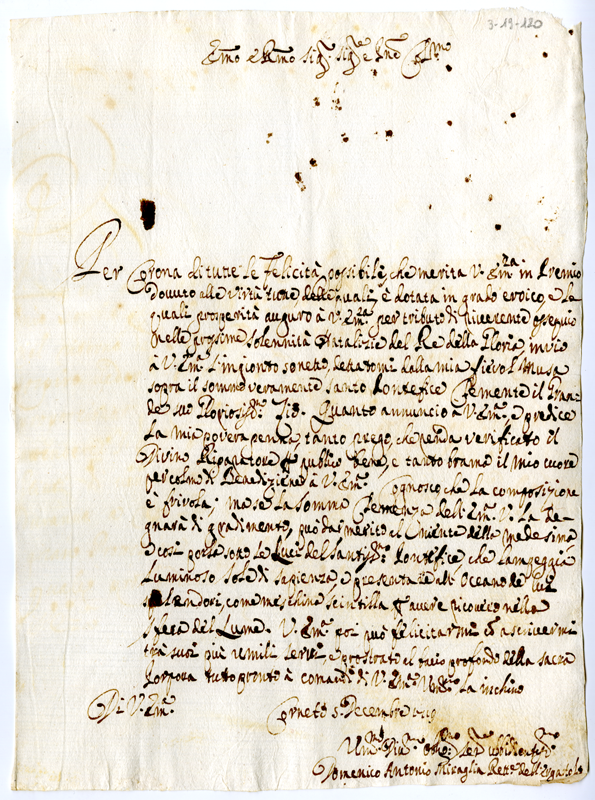 3-19-120
Emo e Rmo Sig.r Sig.re e Pne Colmo
Per Corona di tutte le Felicità possibili, che merita V. Em.za in Premio
dovuto alle virtù tutte delle quali, è dotata in grado eroico, e le
quali prosperità auguro à V. Em.za per tributo di riverente ossequio
nelle prossime solennità Natalizie del Re della Gloria, invio
à V. Em.za l'ingionto sonetto, dettatomi dalla mia fievol Musa
sopra il sommo veramente santo Pontefice Clemente il Gran-
de suo Zio. Quanto annuncio à V. Em.za, e predice
la mia povera penna, tanto prego, che renda verificato il
Divino Riparatore p publico bene, e tanto bramo il mio cuore
per colmo di Benedizione à V. Em.za Cognosco, che la composizione
è frivola; ma se la somma Clemenza dell'Em.za V. la de-
gnarà di gradimento, può dar merito al della medesima
e così porla sotto le Luci del Pontefice che lampeggia
Luminoso sole di sapienza, e presentare all'Oceano de suoi
splendori, come meschina scintilla p avere ricovero nella
sfera del Lume. V. Em.za poi può felicitarmi co ascrivermi
trà suoi più umili servi, e prostrato al bacio profondo della sacra
Porpora tutto pronto à comandi di V. Em.za la inchino
Di V. Em.za Corneto 5 Decembre
Domenico Antonio Miraglia Rett.e dell'Ergastolo